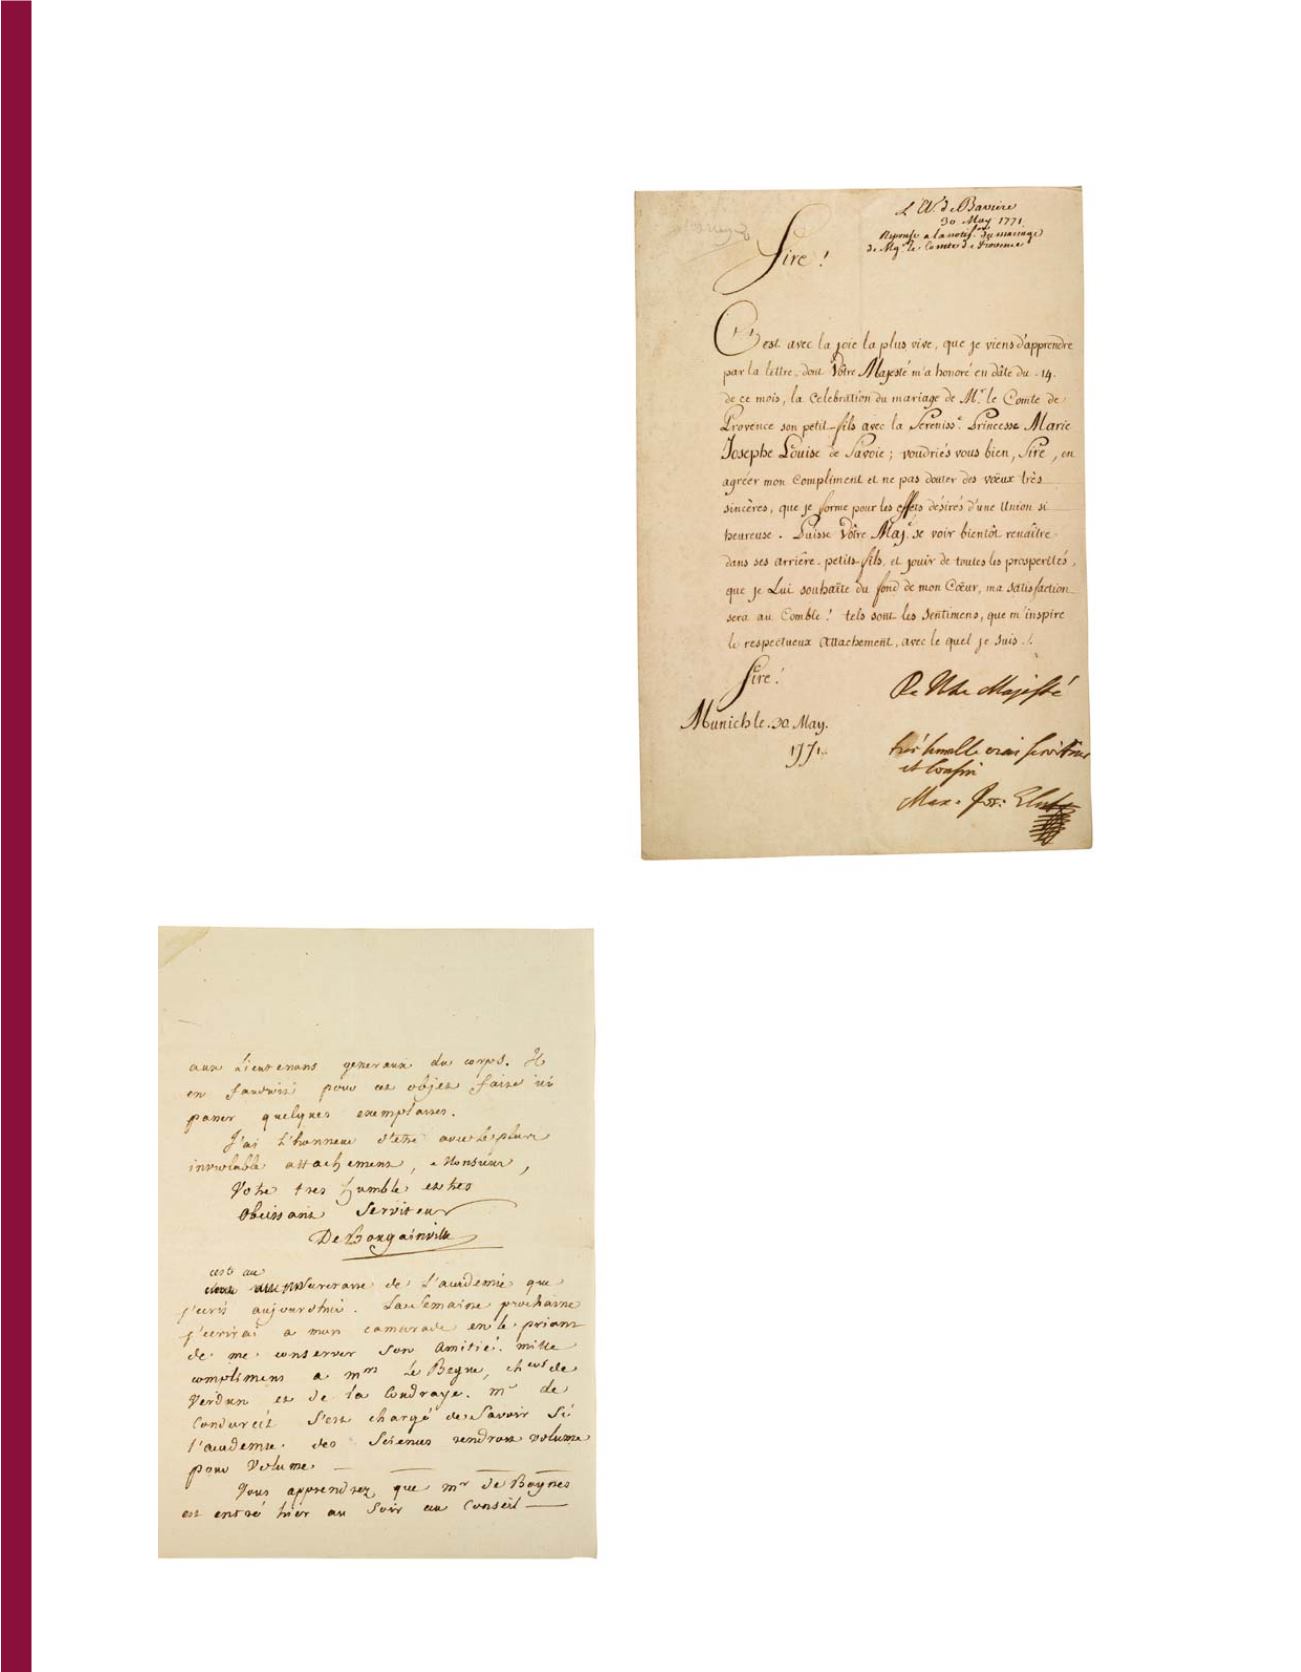 L'El. de Baviere
30 May 1771
Reponse a la notif.on du mariage
de Mgr. le Comte de Provence
Sire!
C'est avec la joie la plus vive, que je viens d'apprendre
par la lettre dont Vôtre Majesté m'a honoré en dâte du 14.
de ce mois, la Celebration du mariage de Mr. le Comte de
Provence son petit-fils avec la Sereniss.e Princesse Marie
Josephe Louise de Savoie; voudriés vous bien, Sire, en
agréer mon Compliment et ne pas douter des vœux très
sincères, que je forme pour les effets désirés d'une Union si
heureuse. Puisse Vôtre Maj.é se voir bientôt renaître
dans ses arrière-petits-fils, et jouir de toutes les prosperités,
que je Lui souhaite du fond de mon Cœur, ma satisfaction
sera au Comble! tels sont les Sentimens, que m'inspire
le respectueux Attachement, avec le quel je suis.
Sire!
Munich le 30 May.
1771.
De Votre Majesté
très humble vrai serviteur
et Cousin
Max. Jos: Elect
aux Lieutenans generaux du corps. Il
en faudroit pour cet objet faire ici
passer quelques exemplaires.
J'ai l'honneur d'etre avec le plus
inviolable attachement, Monsieur,
Votre tres humble et tres
Obeissant Serviteur
De Bougainville
cest au
secretaire de l'academie que
j'ecris aujourdhui. La Semaine prochaine
j'ecrirai a mon camarade en le priant
de me conserver son amitié. mille
complimens a mrs Le Begue, cher de
Verdun et de la Coudraye. mr de
Condorcet s'est chargé de Savoir Si
l'academie des Sciences rendroit volume
pour Volume.
Vous apprendrez que mr de Boynes
est entré hier au Soir au Conseil